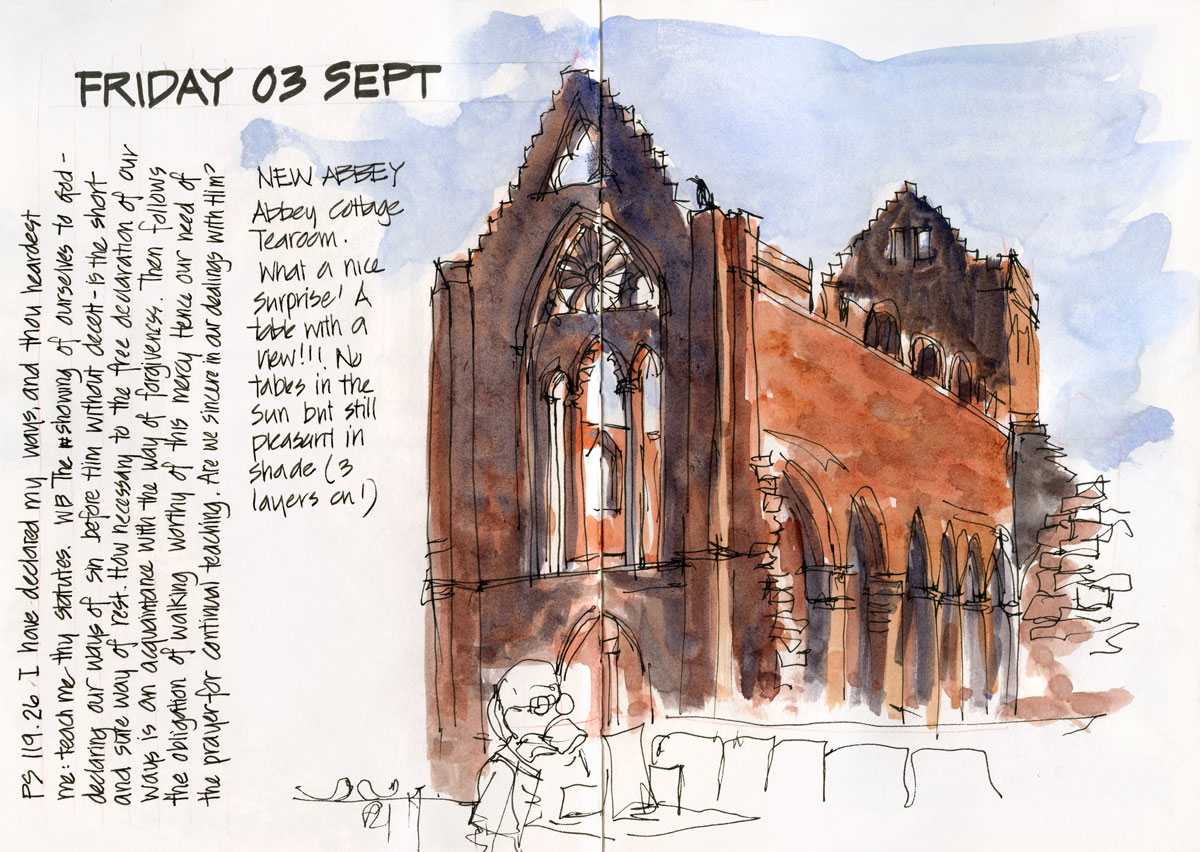 FRIDAY 03 SEPT
NEW ABBEY
Abbey Cottage
Tearoom.
What a nice
surprise! A
table with a
view!!! No
tables in the
sun but still
pleasant in
shade (3
layers on!)
PS 119.26. I have declared my ways, and thou heardest
me: teach me thy statutes. WP The showing of ourselves to God -
declaring our ways of sin before Him without deceit - is the short
and safe way of rest. How necessary to the free declaration of our
ways is an acquaintance with the way of forgiveness. Then follows
the obligation of walking worthy of this mercy hence our need of
the prayer for continual teaching. Are we sincere in our dealings with Him?